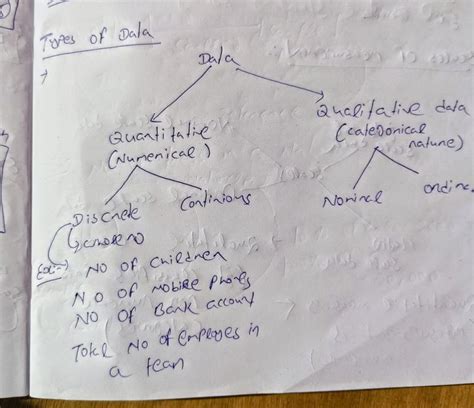 Types of Data
Data
Quantitative
(Numerical)
Qualitative data
(categorical
nature)
Discrete
Continious
Nominal
ordinal
whole no
No of children
N.o of mobile phones
No of Bank account
Total No of employes in
a team